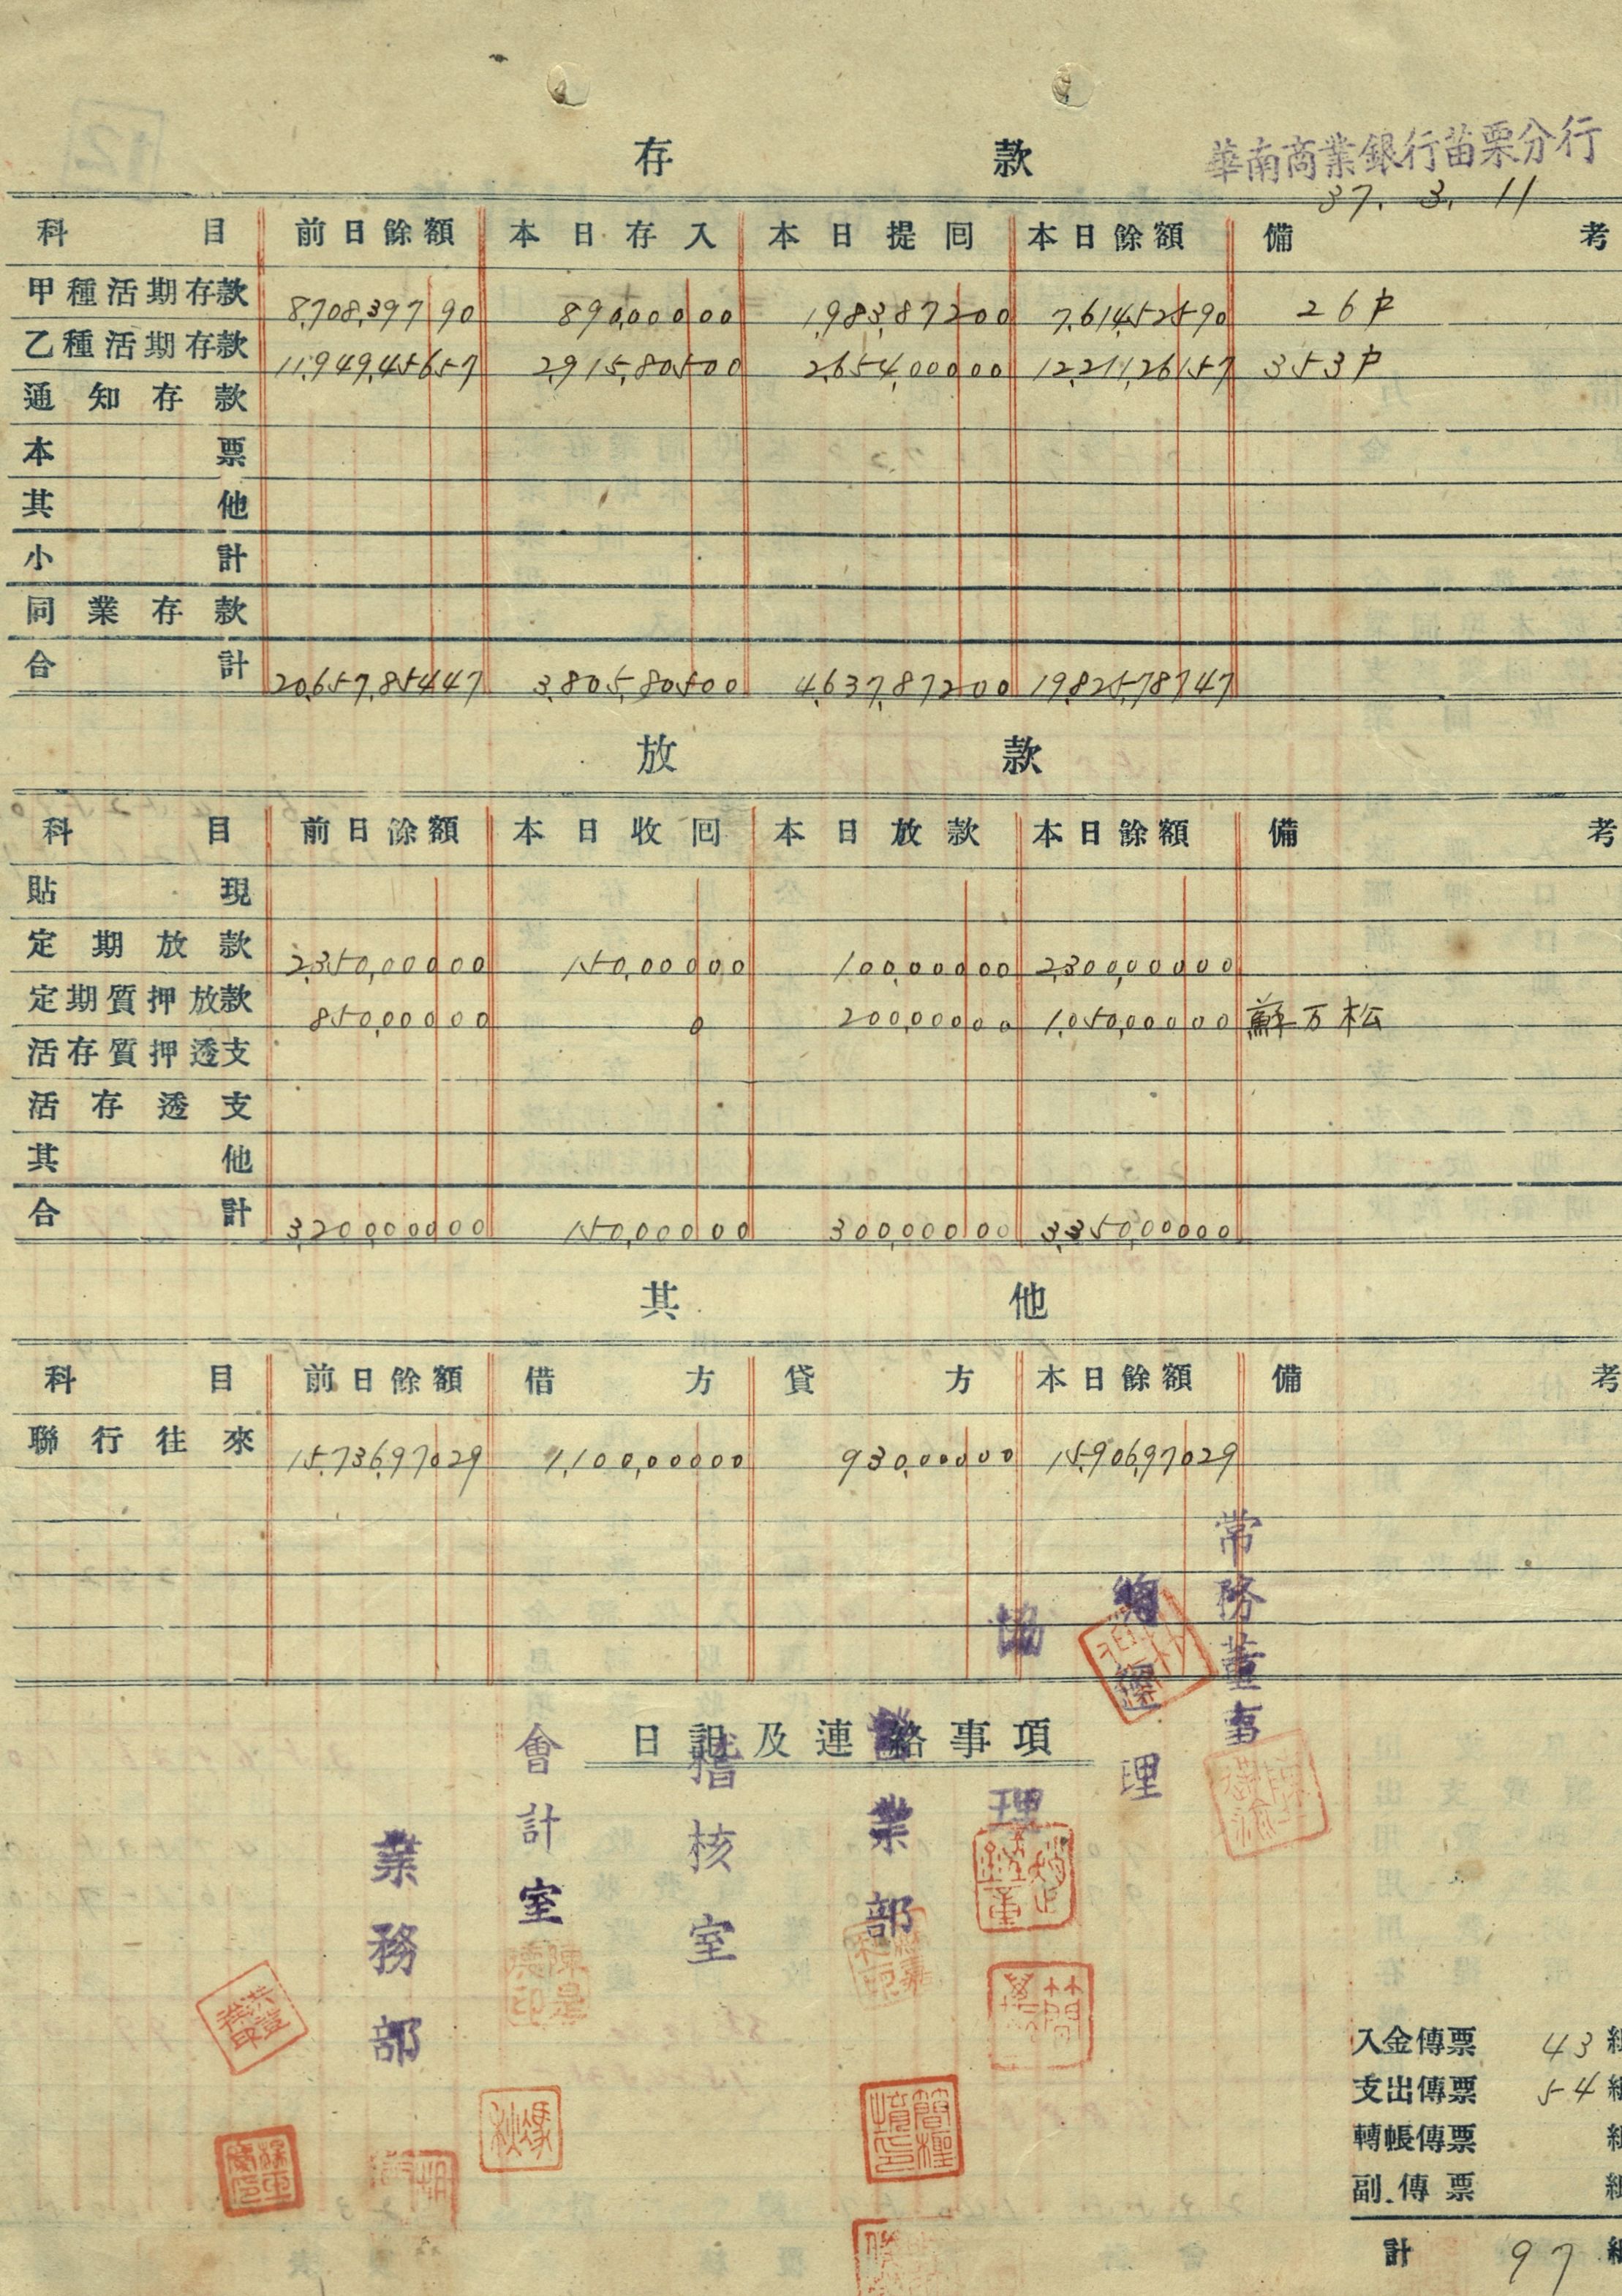 存款
華南商業銀行苗栗分行
37. 3. 11
科目 前日餘額 本日存入 本日提回 本日餘額 備考
甲種活期存款 8,708,397 90 890,000 00 1,983,872 00 7,614,525 90 26戶
乙種活期存款 11,949,456 57 2,915,805 00 2,654,000 00 12,211,261 57 353戶
通知存款
本票
其他
小計
同業存款
合計 20,657,854 47 3,805,805 00 4,637,872 00 19,825,787 47
放款
科目 前日餘額 本日收回 本日放款 本日餘額 備考
貼現
定期放款 2,350,000 00 150,000 00 100,000 00 2,300,000 00
定期質押放款 850,000 00 0 200,000 00 1,050,000 00 蘇万松
活存質押透支
活存透支
其他
合計 3,200,000 00 150,000 00 300,000 00 3,350,000 00
其他
科目 前日餘額 借方 貸方 本日餘額 備考
聯行往來 15,736,970 29 1,100,000 00 930,000 00 15,906,970 29
日記及連絡事項
常務董事
理
協理
業部
稽核室
會計室
業務部
入金傳票 43
支出傳票 54
轉帳傳票
副傳票
計 97